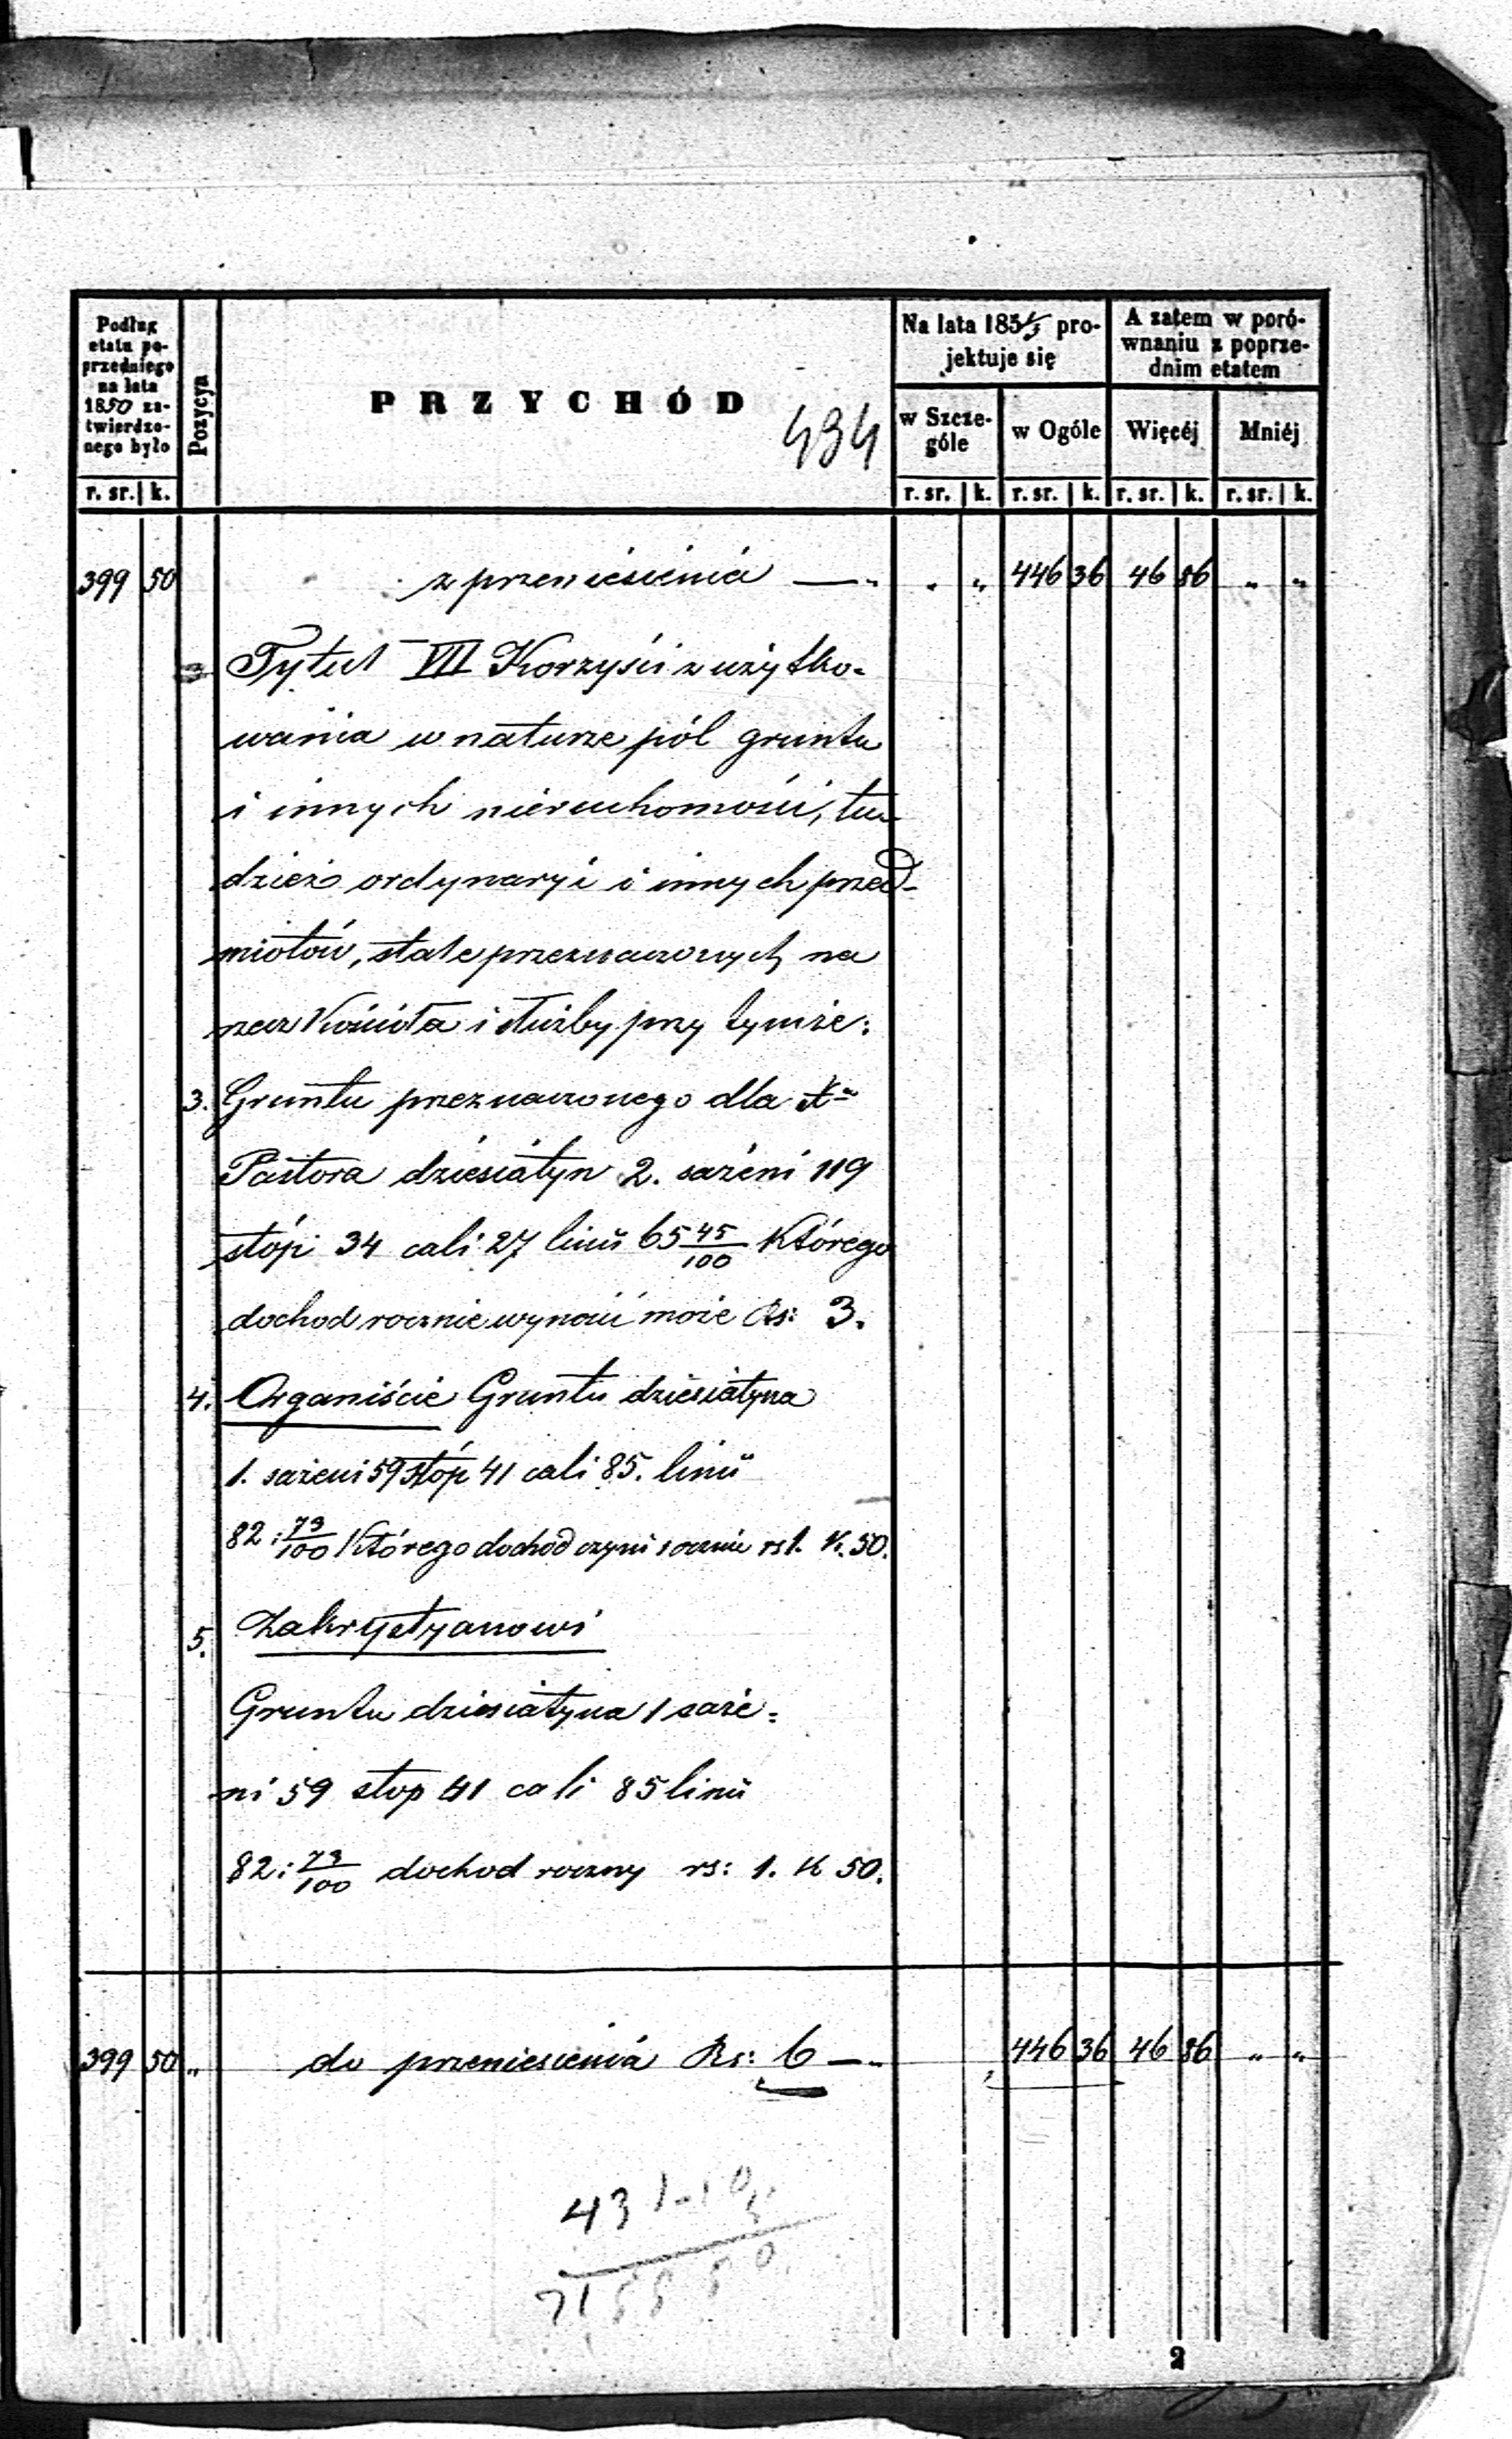 Podług
etatu po-
przedniego
na lata
1850 za-
twierdzo-
nego było
Pozycya
PRZYCHÓD
434
Na lata 185 pro-
jektuje się
A zatem w poró-
wnaniu z poprze-
dnim etatem
w Szcze-
góle
w Ogóle
Więcéj
Mniéj
r. sr. k. r. sr. k. r. sr. k. r. sr. k. r. sr. k.
399 50 z przeniesienia — „ „ „ 446 36 46 86 „ „
Tytuł VII Korzyści z użytko-
wania w naturze pól gruntu
i innych nieruchomości, tu-
dzież ordynaryi i innych przed-
miotów, stale przeznaczonych na
rzecz Kościoła i służby przy tymże:
3. Gruntu przeznaczonego dla Xa
Pastora dziesiatyn 2. sażeni 119
stóp 34 cali 27 linii 65 45/100 Którego
dochod rocznie wynosić może Rs: 3.
4. Organiście Gruntu dziesiatyna
1. sażeni 59 stóp 41 cali 85. linii
82: 73/100 Którego dochod czyni rocznie rs 1. K. 50.
5. Zakrystyanowi
Gruntu dziesiatyna 1 saże=
ni 59 stop 41 cali 85 linii
82: 73/100 dochod roczny rs: 1. K 50.
399 50 „ do przeniesienia Rs: 6 — „ 446 36 46 86 „ „
431
2